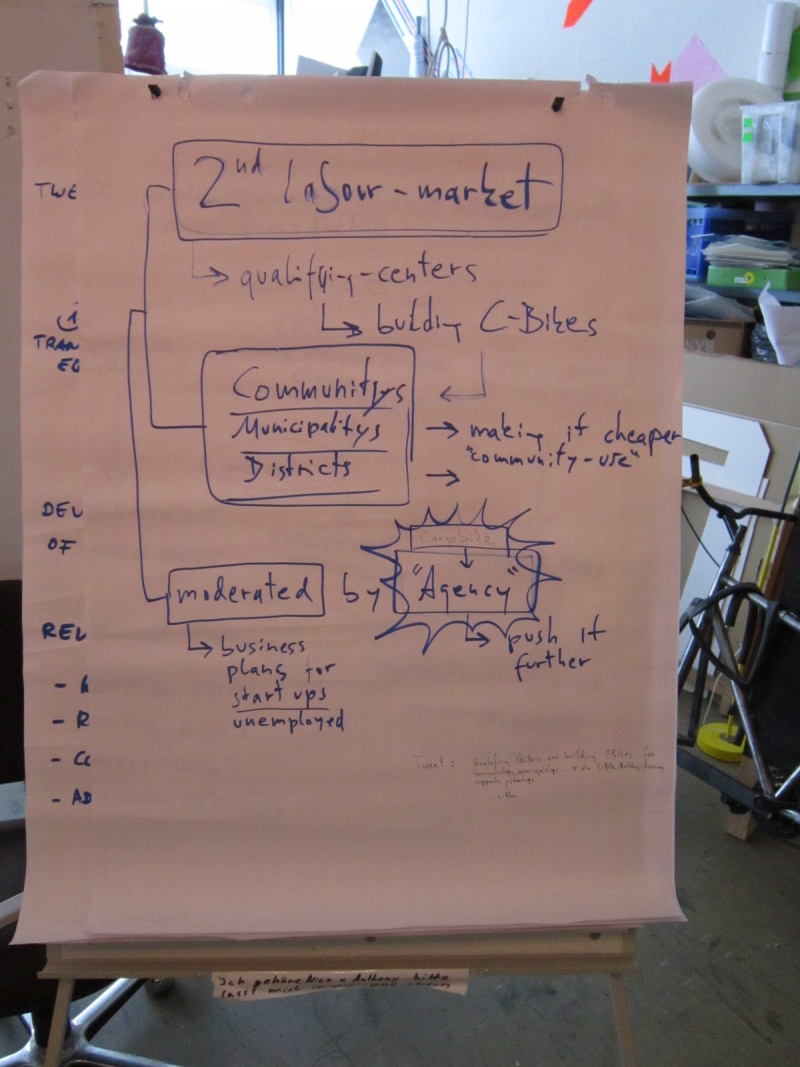 2nd labour-market
qualifying-centers
building C-Bikes
Communitys
Municipalitys
Districts
making it cheaper
"community-use"
Cargobike
moderated by "Agency"
push it
further
business
plans for
start ups
unemployed
TWE
TRAN
EC
DEV
OF
REL
- R
- AD
Tweet: Qualifying Centers are building CBikes for
Ich gehöre Nico + Anthony bitte
lasst mich